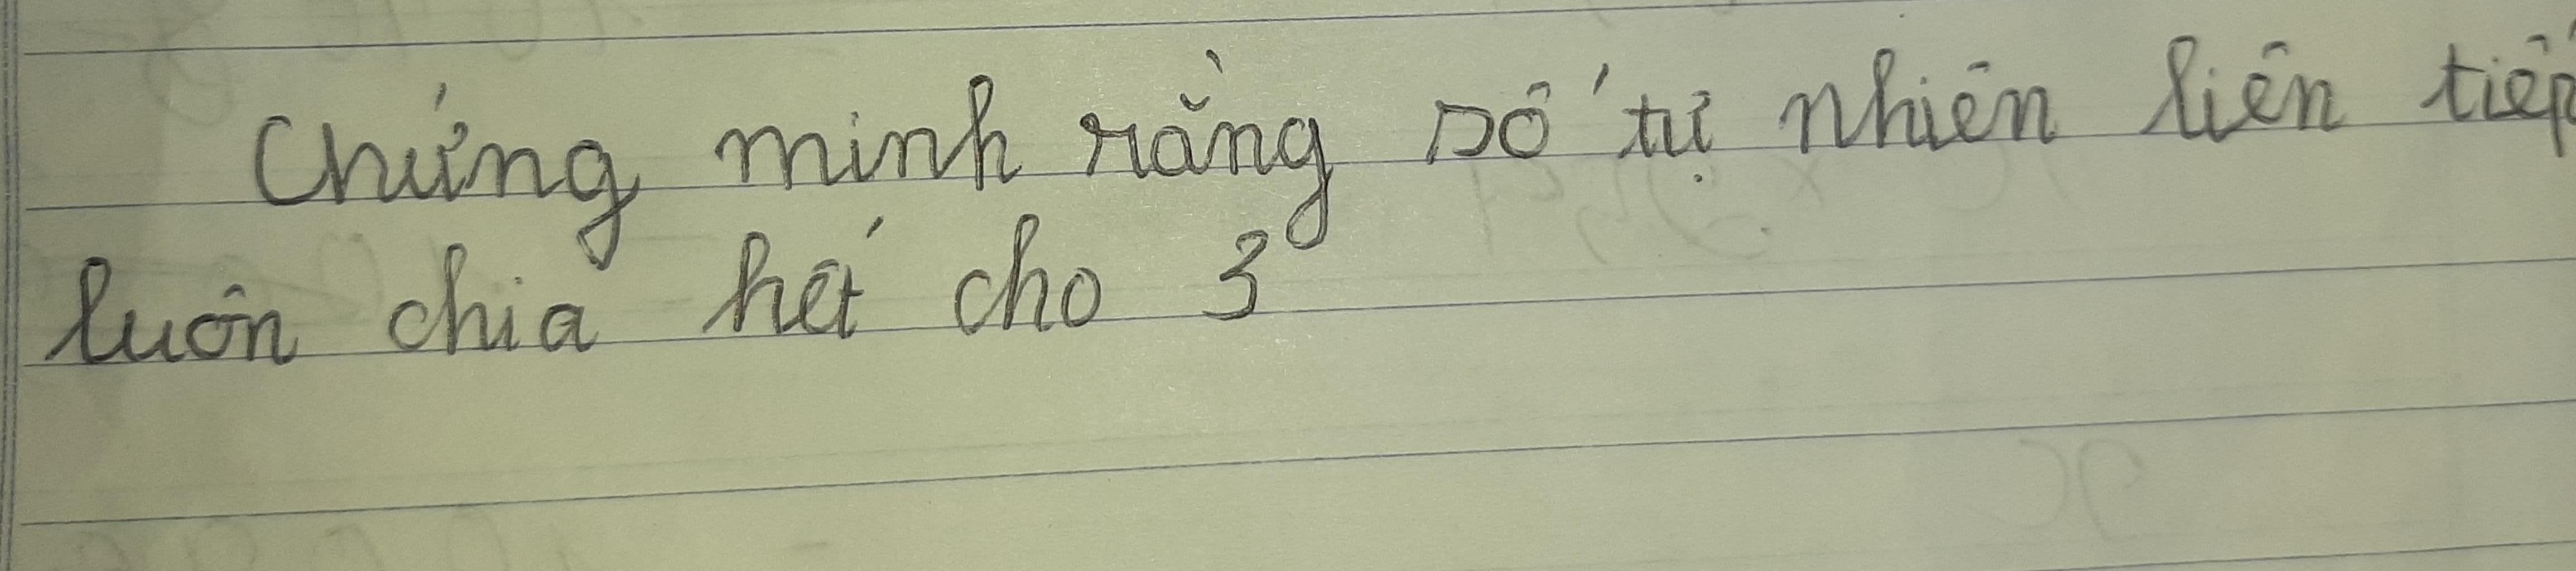 Chứng minh rằng số tự nhiên liên tiếp
luôn chia hết cho 3